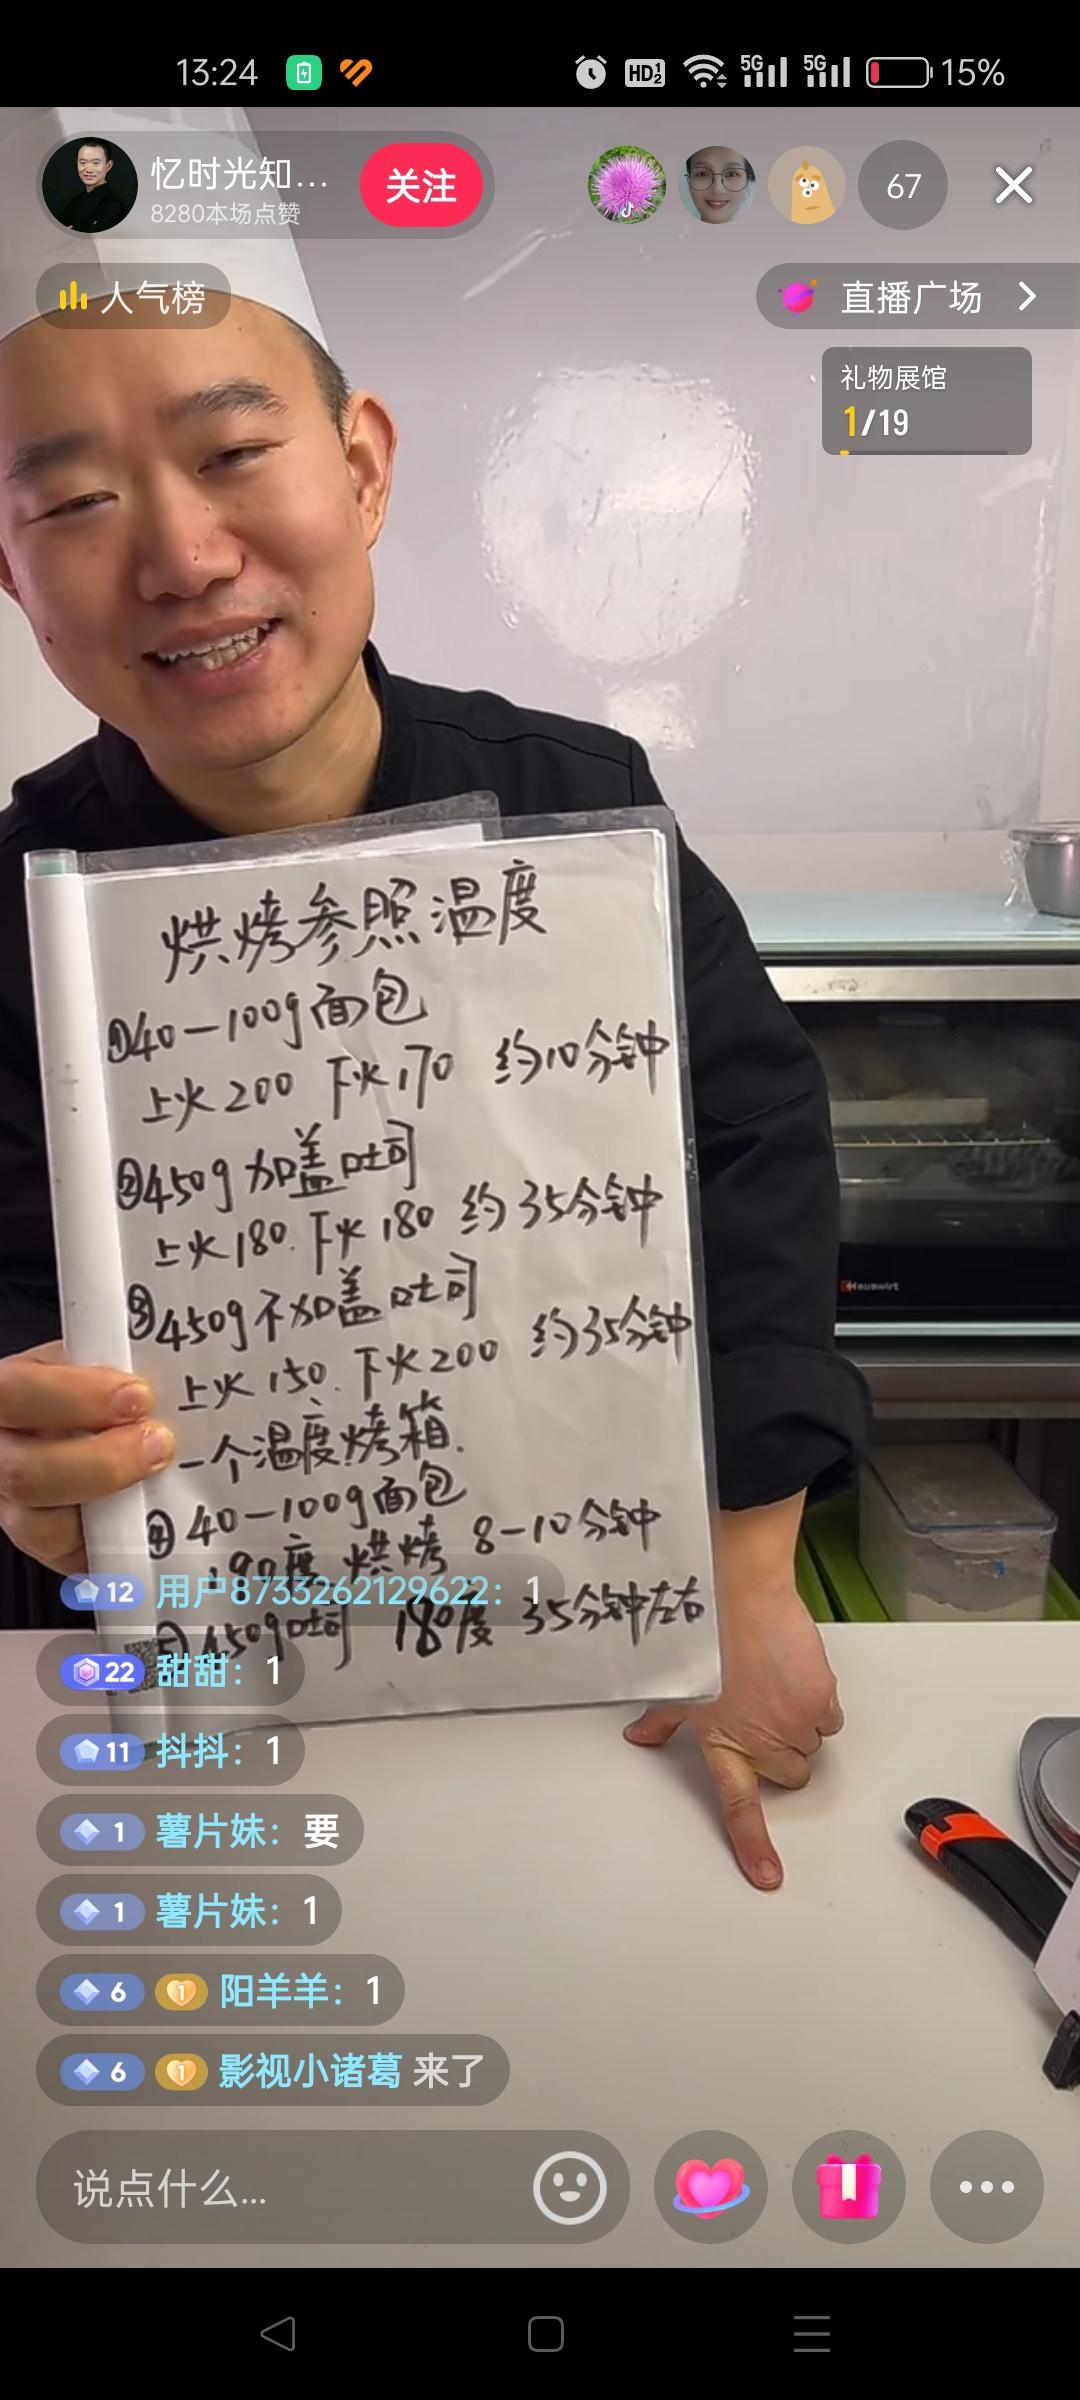 13:24
HD12
5G
5G
15%
忆时光知...
8280本场点赞
关注
67
人气榜
直播广场
礼物展馆
1/19
烘烤参照温度
①40-100g面包
上火200 下火170 约10分钟
②450g加盖吐司
上火180.下火180 约35分钟
③450g不加盖吐司
上火150、下火200 约35分钟
一个温度烤箱.
④40-100g面包
190度 烘烤 8-10分钟
⑤450g吐司 180度 35分钟左右
Hauswirt
12 用户8733262129622：1
22 甜甜：1
11 抖抖：1
1 薯片妹：要
1 薯片妹：1
6 1 阳羊羊：1
6 1 影视小诸葛 来了
说点什么...